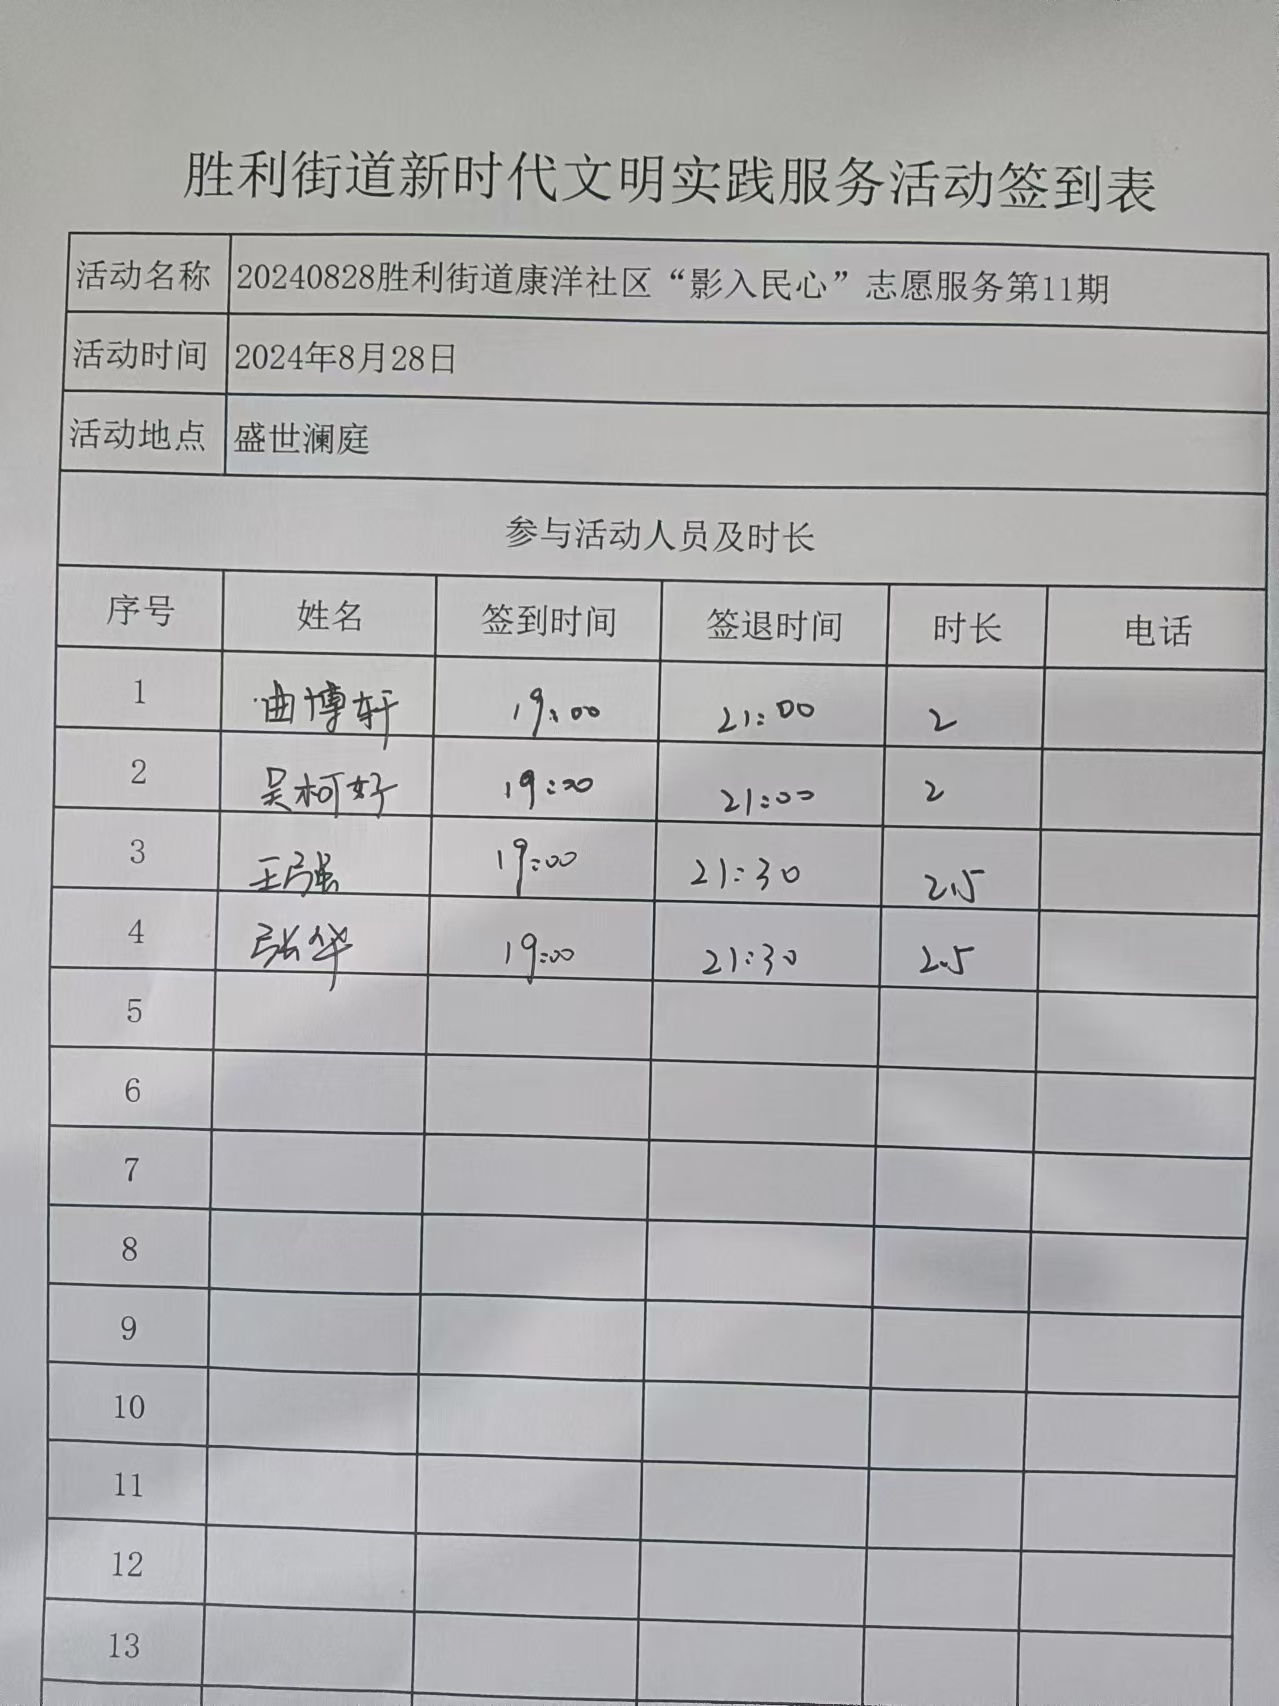 胜利街道新时代文明实践服务活动签到表
活动名称 20240828胜利街道康洋社区“影入民心”志愿服务第11期
活动时间 2024年8月28日
活动地点 盛世澜庭
参与活动人员及时长
序号 姓名 签到时间 签退时间 时长 电话
1 曲博轩 19:00 21:00 2
2 吴柯好 19:00 21:00 2
3 王强 19:00 21:30 2.5
4 张华 19:00 21:30 2.5
5
6
7
8
9
10
11
12
13